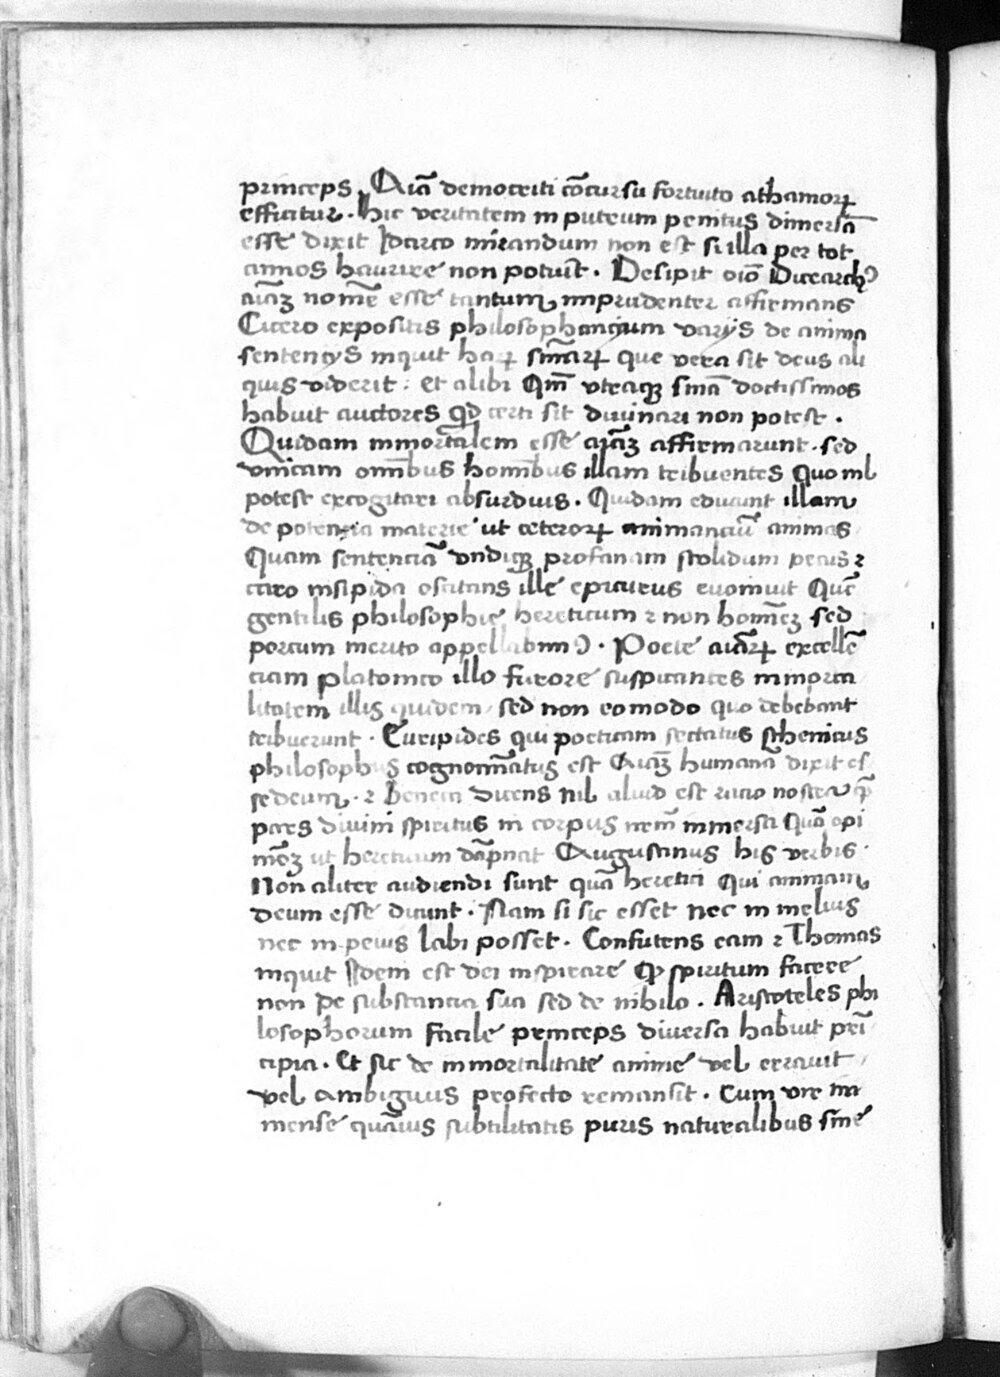 princeps. Aīa democriti cōcursu fortuito athamoꝝ
efficitur. hic veritatem in puteum penitus dimersā
esse dixit Idarco mirandum non est si illa per tot
annos haurire non potuit. Desipit oīo Dicearchꝰ
aīaꝫ nomē esse tantum imprudenter affirmans
Cicero expositis philosophancium varijs de anima
sentencijs inquit haꝝ smāꝝ que vera sit deus ali
quis viderit: et alibi Qm̄ vtraqꝫ smā doctissimos
habuit auctores qd certi sit diuinari non potest.
Quidam inmortalem esse aīaꝫ affirmarunt. sed
vnicam omībus homībus illam tribuentes Quo nil
potest excogitari absurduis. Quidam educunt illam
de potenzia materie ut ceteroꝝ animanciū animas
Quam sentenciā vndiqꝫ profanam stolidum pecus ⁊
cicro insipida oscitans ille epicurus euomuit Quē
gentilis philosophie hereticum ⁊ non homīeꝫ sed
porcum merito appellabimꝰ. Poete aīaꝝ excellē
ciam platonico illo furore suspicantes inmorta
litatem illis quidem sed non eo modo quo debebant
tribuerunt. Euripides qui poeticam sectatus sthenicus
philosophus cognomīatus est Aīaꝫ humanā dixit es
se deum. ⁊ Seneca dicens nil aliud est racio nostra qꝫ
pars diuini spiritus in corpus nrm̄ inmersa Quā opi
nīoꝫ ut hereticum dāpnat Augustinus his verbis.
Non aliter audiendi sunt quā heretici Qui animam
deum esse dicunt. Nam si sic esset nec in melius
nec in peius labi posset. Confutens eam ⁊ Thomas
inquit Idem est dei inspirare qꝫ spiritum facere
non de substancia sua sed de nihilo. Aristoteles phi
losophorum facile princeps diuersa habuit prī
cipia. Et sic de inmortalitate anime vel errauit
vel ambiguus profecto remansit. Cum vir im
mense quāuis subtilitatis puris naturalibus sine